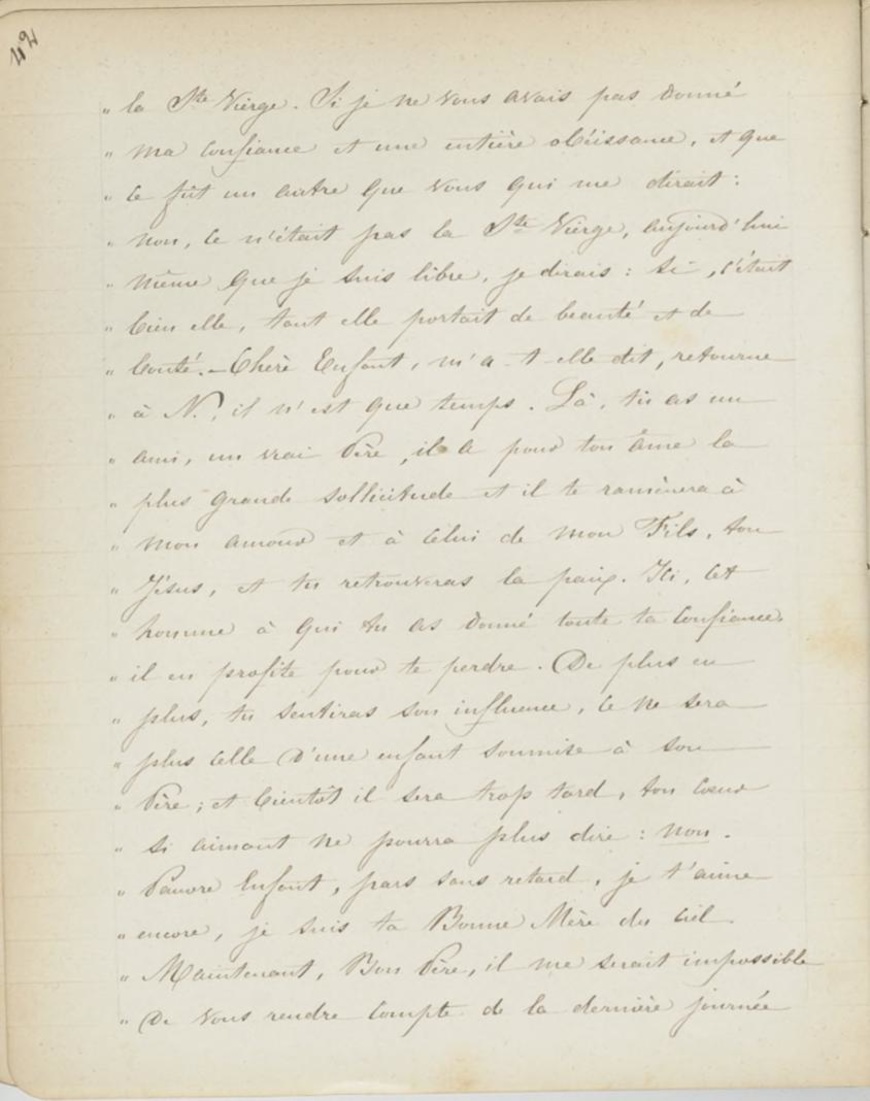 42
" la Ste Vierge. Si je ne vous avais pas donné
" ma confiance et une entière obéissance, et que
" ce fût un autre que vous qui me dirait :
" non, ce n'était pas la Ste Vierge, aujourd'hui
" même que je suis libre, je dirais : si, c'était
" bien elle, tant elle portait de beauté et de
" bonté. – Chère Enfant, m'a-t-elle dit, retourne
" à N., il n'est que temps. Là, tu as un
" ami, un vrai Père, il a pour ton âme la
" plus grande sollicitude et il te ramènera à
" mon amour et à celui de mon Fils, ton
" Jésus, et tu retrouveras la paix. Ici, cet
" homme à qui tu as donné toute ta confiance
" il en profite pour te perdre. De plus en
" plus, tu sentiras son influence, ce ne sera
" plus celle d'une enfant soumise à son
" Père ; et bientôt il sera trop tard, ton cœur
" si aimant ne pourra plus dire : non.
" Pauvre Enfant, pars sans retard, je t'aime
" encore, je suis ta Bonne Mère du ciel
" Maintenant, Bon Père, il me serait impossible
" De vous rendre compte de la dernière journée